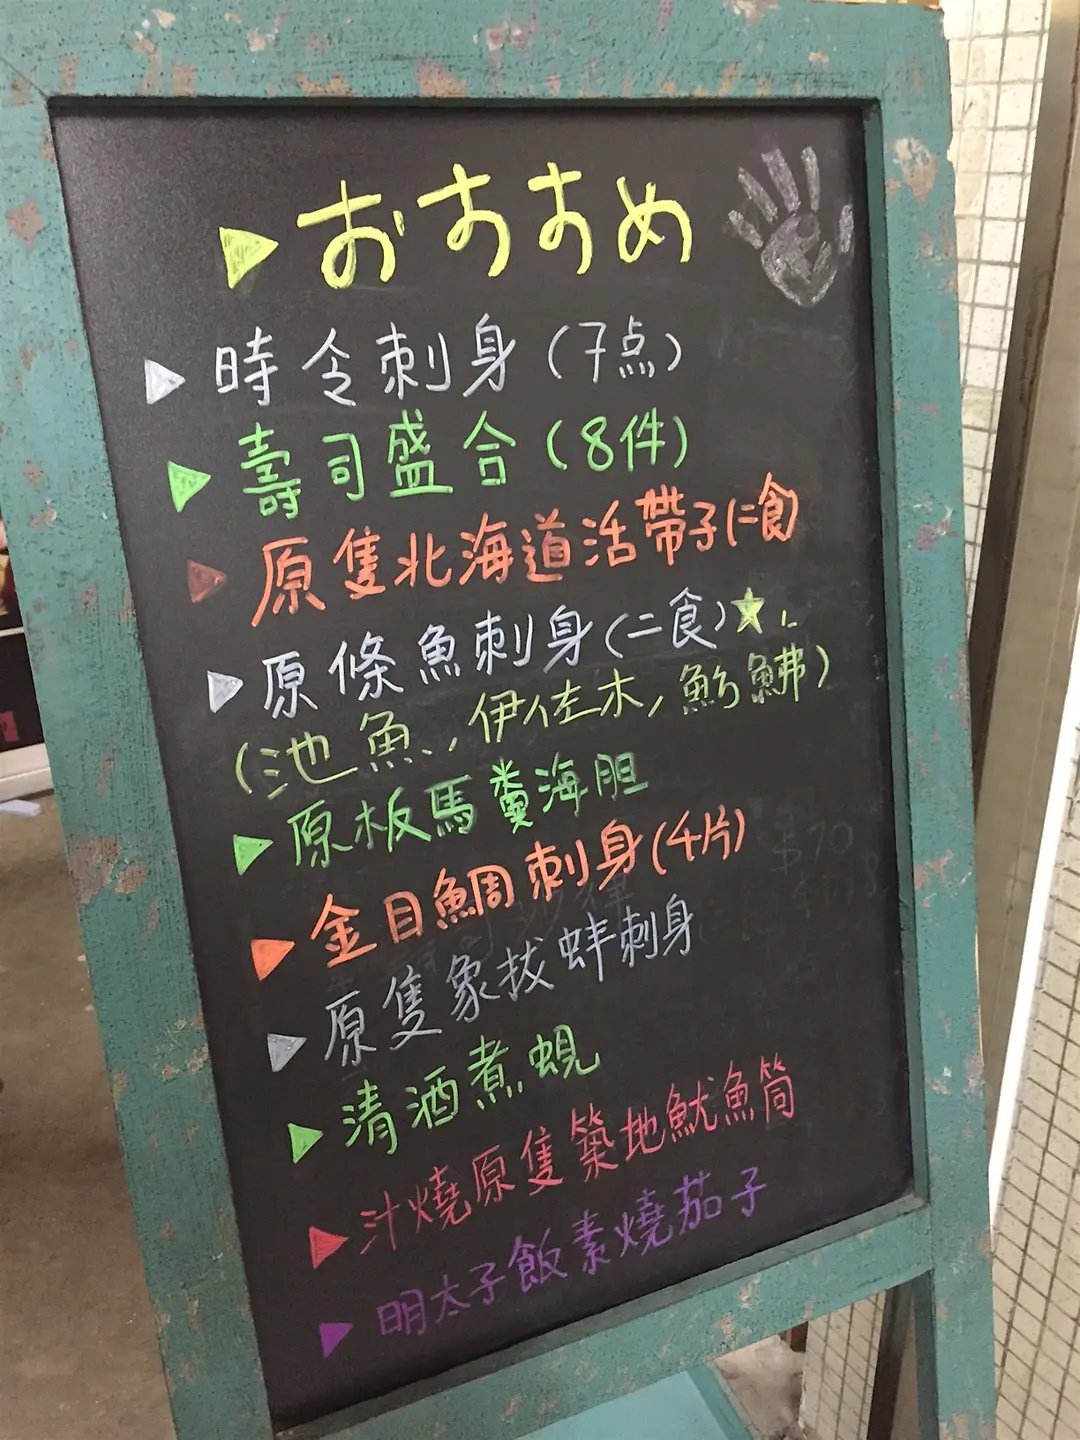 おすすめ
時令刺身(7点)
壽司盛合(8件)
原隻北海道活帶子(二食)
原條魚刺身(二食)
(池魚、,伊佐木,魴鮄)
原板馬糞海胆
金目鯛刺身(4片)
原隻象拔蚌刺身
清酒煮蜆
汁燒原隻築地魷魚筒
明太子飯素燒茄子